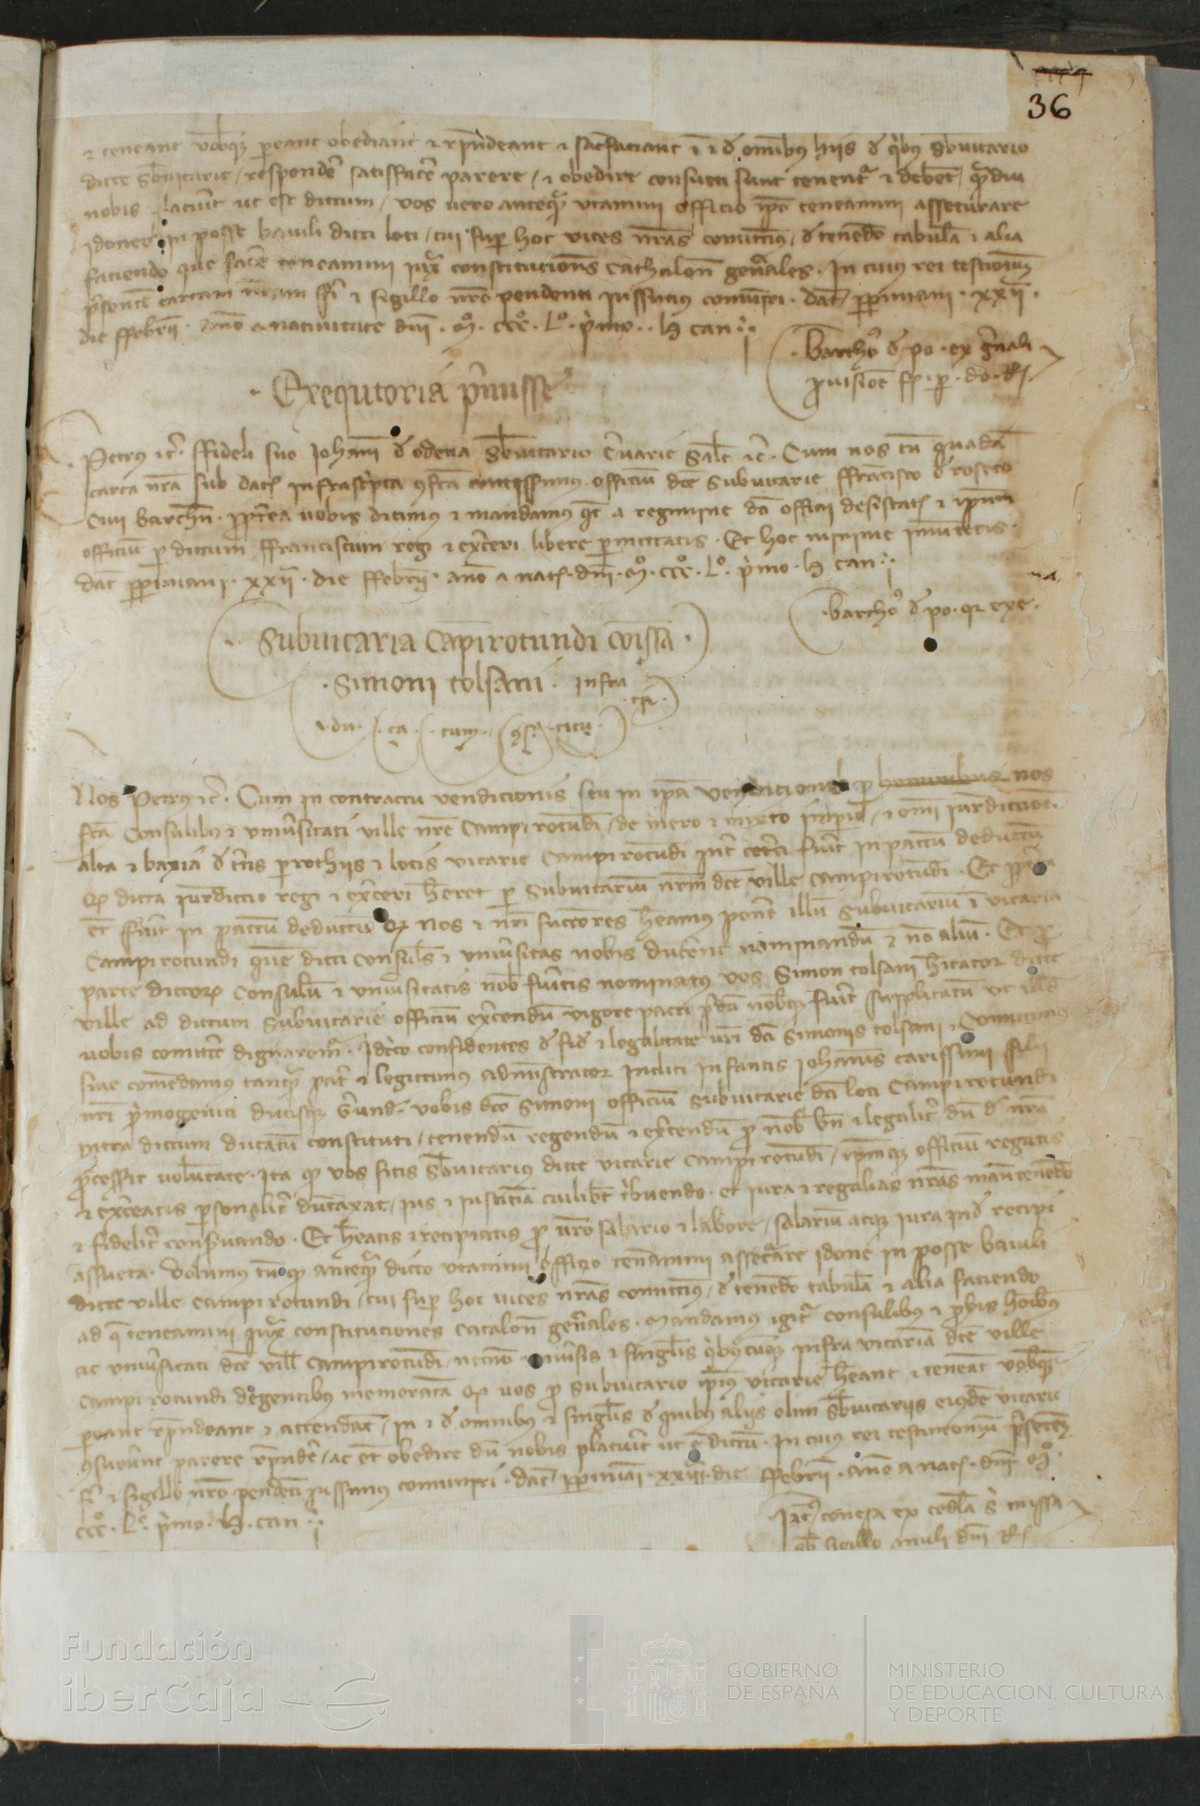 36
et teneant vobisque pareant obediant et rpndeant et satisfaciant in et de omnibus hiis de quibus subvicario
dicte subvicarie / respondere satisffacere parere / et obedire consueti sunt tenentur et debent / quamdiu
nobis placuerit ut est dictum / vos vero antequam utamini officio ipso teneamini assecurare
idonee in posse baiuli dicti loci / cui super hoc vices nras comittimus / de tenendo tabulam et alia
faciendo que facere teneamini iuxta constituciones Cathalon generales . In cuius rei testimonium
presentem cartam nram fieri et sigillo nro pendenti iussimus comuniri . dat perpiniani . xxii .
die ffebrii . anno a nativitate dni . Mo . ccco . Lo . primo . . H can .
. Bartho de po . ex gnali
provisioe fca . per . do . R
. Exequtoria pmisse
Petrus etc . ffideli suo Johani de odena subvicario Cvarie salt etc . Cum nos cum quadam
carta nra sub dat infrascripta concessimus officium dce subvicarie ffrancisco de roseto
Civi barchn . propterea vobis dicimus et mandamus qt a regimine dci officii desistatis et ipsum
officium per dictum ffranciscum regi et exerceri libere permittatis . Et hoc minime immutetis .
dat perpiniani . xxii . die ffebrii . ano a nat . dni . Mo . ccco . Lo . primo . H can .
. Bartho de po . qr exe .
. Subvicaria Campirotundi comissa .
. Simoni tolsani . infra
. du . ca . . cum . . citu .
Nos Petrus etc . Cum in contractu vendicionis seu in ipa vendicione per hominibus nos
fca Consulibus et universitati ville nre Campi rotundi / de mero et mixto imperio / et omni iurediccione
alta et baxia de tris parrochiis et locis vicarie Campi rotundi inter cetera fuerit in pactum deductum
qd dicta iurediccio regi et exerceri heret per Subvicarium nrm dce ville Campirotundi . Et
et ffuerit in pactum deductum qd nos et nri succores heamus ponere illum subvicarium in vicaria
Campirotundi quem dicti consules et universitas nobis duxerint nominandum et non alium . Et pro
parte dictorum Consulum et universitatis nob fueritis nominatus vos Simon tolsani hitator dicte
ville ad dictum subvicarie officium exercendum vigore pacti predci nobisque fuerit supplicatum ut illud
vobis comittere dignaremur . Idcirco confidentes de fide et legalitate vri dci Simonis tolsani
sive comendamus tanquam pater et legittimus administrator Incliti infantis Johannis carissimi filii
nri primogeniti ducisque Gerunde . vobis dco Simoni officium subvicarie dci loci Campirotundi
intra dictum ducatum constituti / tenendum regendum et exercendum pro nob bn et legaliter dum de nra
processerit voluntate . Ita qd vos sitis Subvicarius dicte vicarie Campirotundi / ipsumque officium regatis
et exerceatis personaliter dumtaxat / ius et iusticiam cuilibet tribuendo . et iura et regalias nras manutenendo
et fideliter conservando . Et heatis et recipiatis pro vro salario et labore / salarium atque iura inde recipi
assueta . Volumus tamen qd antequam dicto utamini officio teneamini assecurare idonee in posse baiuli
dicte ville Campi rotundi / cui super hoc vices nras comittimus / de tenendo tabulam et alia faciendo
ad que teneamini iuxta constituciones Catalon generales . Mandamus igitur consulibus et probis hominibus
ac universitati dce ville Campirotundi / necnon universis et singulis quibuscumque infra vicariam dce ville
Campi rotundi degentibus memoratam qd vos pro subvicario ipius vicarie heant et teneant vobisque
pareant rpndeant et attendant / in et de omnibus et singulis de quibus aliis olim subvicariis eiusdem vicarie
consueverunt parere rpndere / ac et obedire dum nobis placuerit ut e dictum . In cuius rei testimonium presentem
fieri et sigillo nro pendenti iussimus comuniri . dat perpiniani . xxiii . die ffebrii . ano a nat . dni Mo
ccco . Lo . primo . H . can .
Jac conesa ex cedula si missa
sub sigillo anuli dni R
Fundación
iberCaja
GOBIERNO
DE ESPAÑA
MINISTERIO
DE EDUCACIÓN, CULTURA
Y DEPORTE